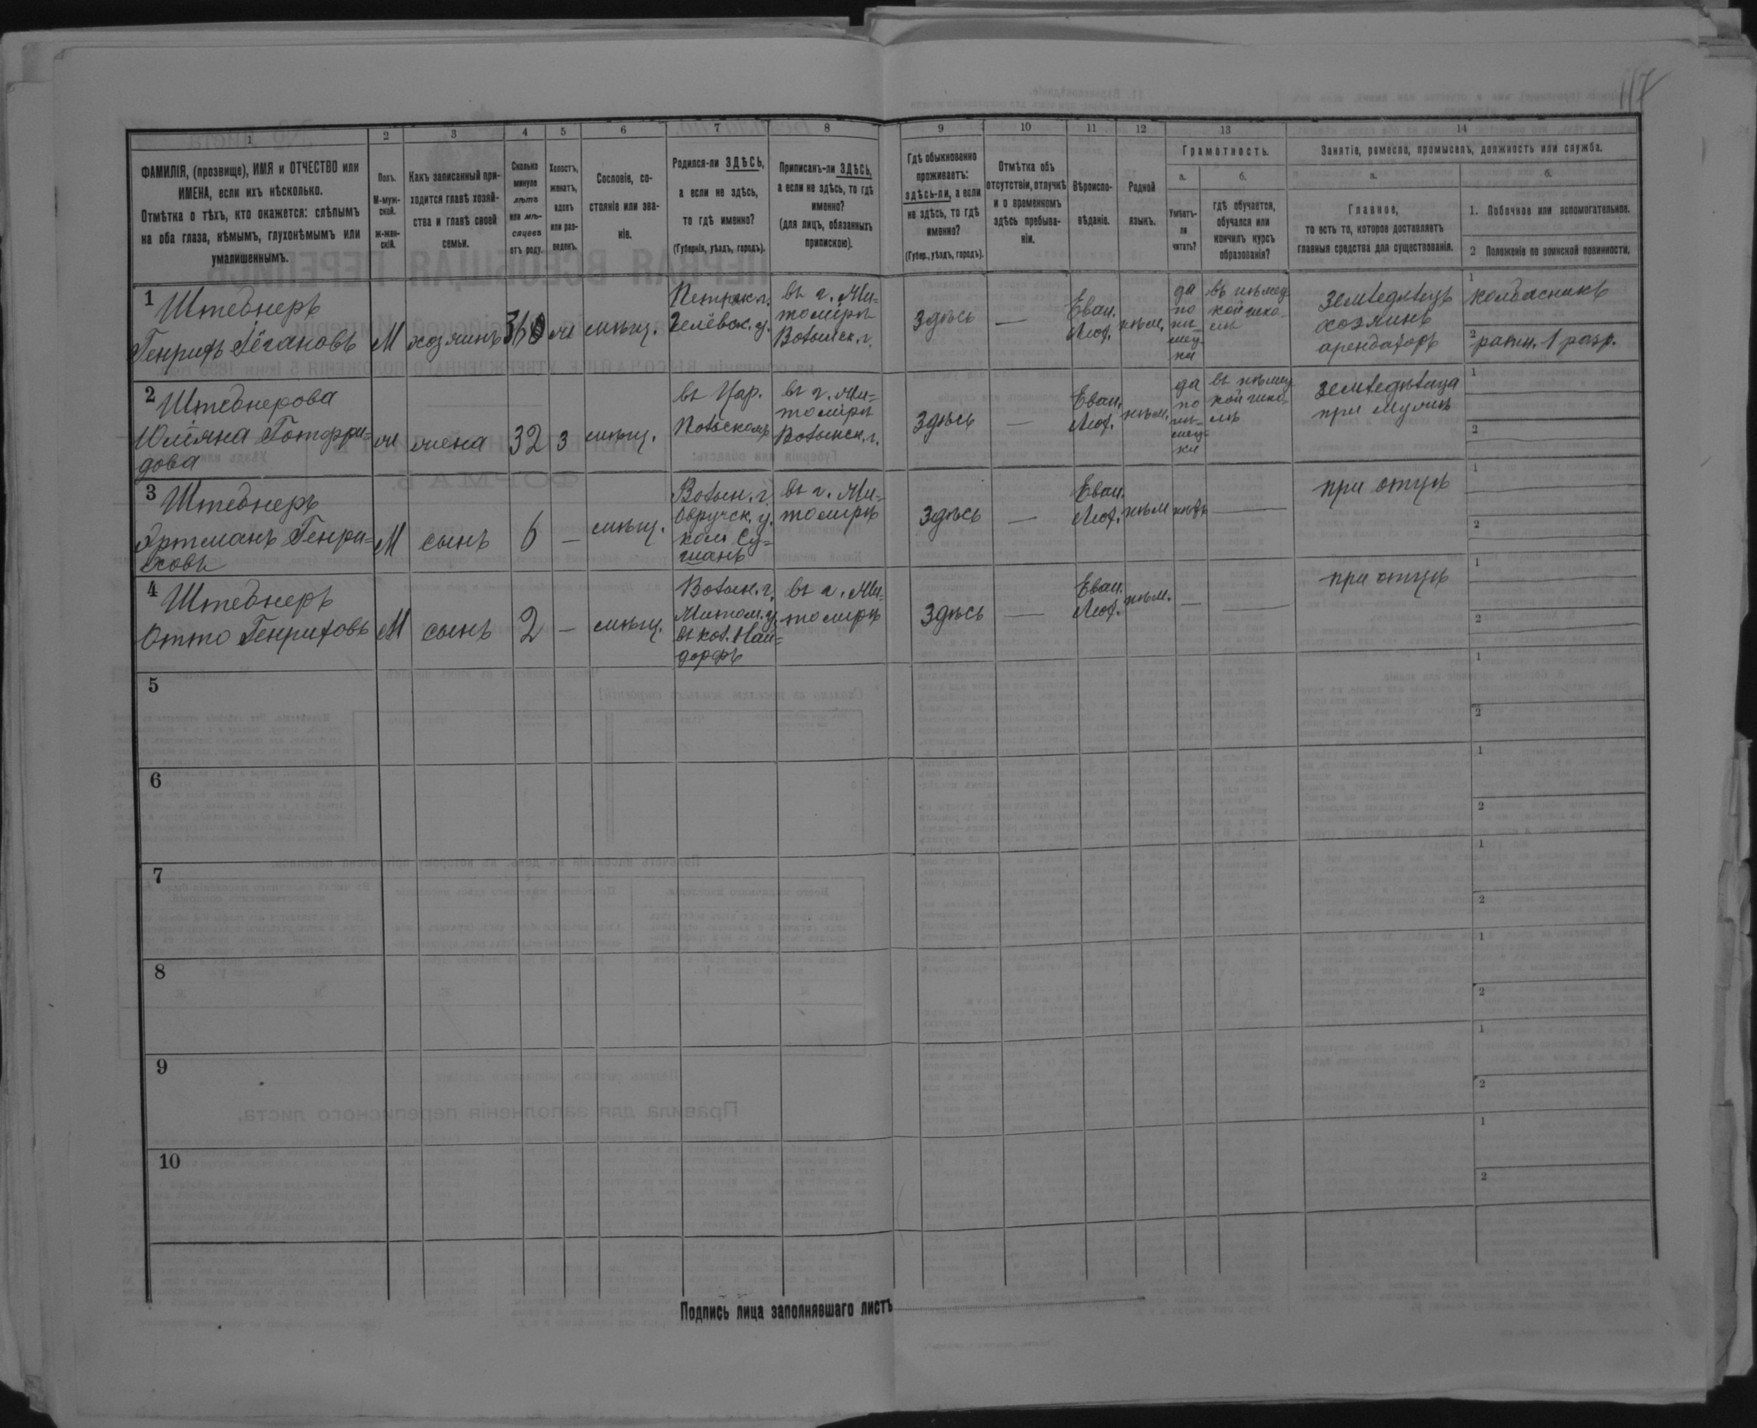 117
1
2
3
4
5
6
7
8
9
10
11
12
13
14
ФАМИЛІЯ, (прозвище), ИМЯ и ОТЧЕСТВО или
ИМЕНА, если ихъ нѣсколько.
Отмѣтка о тѣхъ, кто окажется: слѣпымъ
на оба глаза, нѣмымъ, глухонѣмымъ или
умалишеннымъ.
Полъ.
М-муж-
ской.
ж-жен-
скій.
Какъ записанный при-
ходится главѣ хозяй-
ства и главѣ своей
семьи.
Сколько
минуло
лѣтъ
или мѣ-
сяцевъ
отъ роду.
Холостъ,
женатъ,
вдовъ
или раз-
веденъ.
Сословіе, со-
стояніе или зва-
ніе.
Родился-ли ЗДѢСЬ,
а если не здѣсь,
то гдѣ именно?
(Губернія, уѣздъ, городъ).
Приписанъ-ли ЗДѢСЬ,
а если не здѣсь, то гдѣ
именно?
(для лицъ, обязанныхъ
припискою).
Гдѣ обыкновенно
проживаетъ:
здѣсь-ли, а если
не здѣсь, то гдѣ
именно?
(Губер., уѣздъ, городъ).
Отмѣтка объ
отсутствіи, отлучкѣ
и о временномъ
здѣсь пребыва-
ніи.
Вѣроиспо-
вѣданіе.
Родной
языкъ.
Грамотность.
а.
Умѣетъ-
ли
читать?
б.
гдѣ обучается,
обучался или
кончилъ курсъ
образованія?
Занятіе, ремесло, промыселъ, должность или служба.
а.
Главное,
то есть то, которое доставляетъ
главныя средства для существованія.
б.
1. Побочное или вспомогательное.
2 Положеніе по воинской повинности.
1
Штебнеръ
Генрихъ Іёгановъ
М
хозяинъ
ж
мѣщ.
въ г. Жи-
томирѣ
Волынск. г.
здѣсь
—
Еван.
Лют.
нѣм.
да
по
нѣ-
мец-
ки
въ нѣмец
кой шко-
лѣ
земледѣлецъ
хозяинъ
арендаторъ
1 колбасникъ
2 ратн. 1 разр.
2
Штебнерова
Юліяна Готфри-
дова
ж
жена
32
з
мѣщ.
въ Цар.
Польскомъ
въ г. Жи-
томирѣ
Волынск. г.
здѣсь
—
Еван.
Лют.
нѣм.
да
по
нѣ-
мец-
ки
въ нѣмец
кой шко-
лѣ
земледѣлица
при мужѣ
1
2
3
Штебнеръ
Генри-
ховъ
М
сынъ
6
—
мѣщ.
Волын. г.
Овручск. у.
въ г. Жи-
томирѣ
здѣсь
—
Еван.
Лют.
нѣм
нѣтъ
—
при отцѣ
1
2
4
Штебнеръ
Отто Генриховъ
М
сынъ
2
—
мѣщ.
Волын. г.
Житом. у.
въ кол. Най-
дорфъ
въ г. Жи-
томирѣ
здѣсь
—
Еван.
Лют.
нѣм.
—
—
при отцѣ
1
2
5
1
2
6
1
2
7
1
2
8
1
2
9
1
2
10
1
2
Подпись лица заполнявшаго листъ